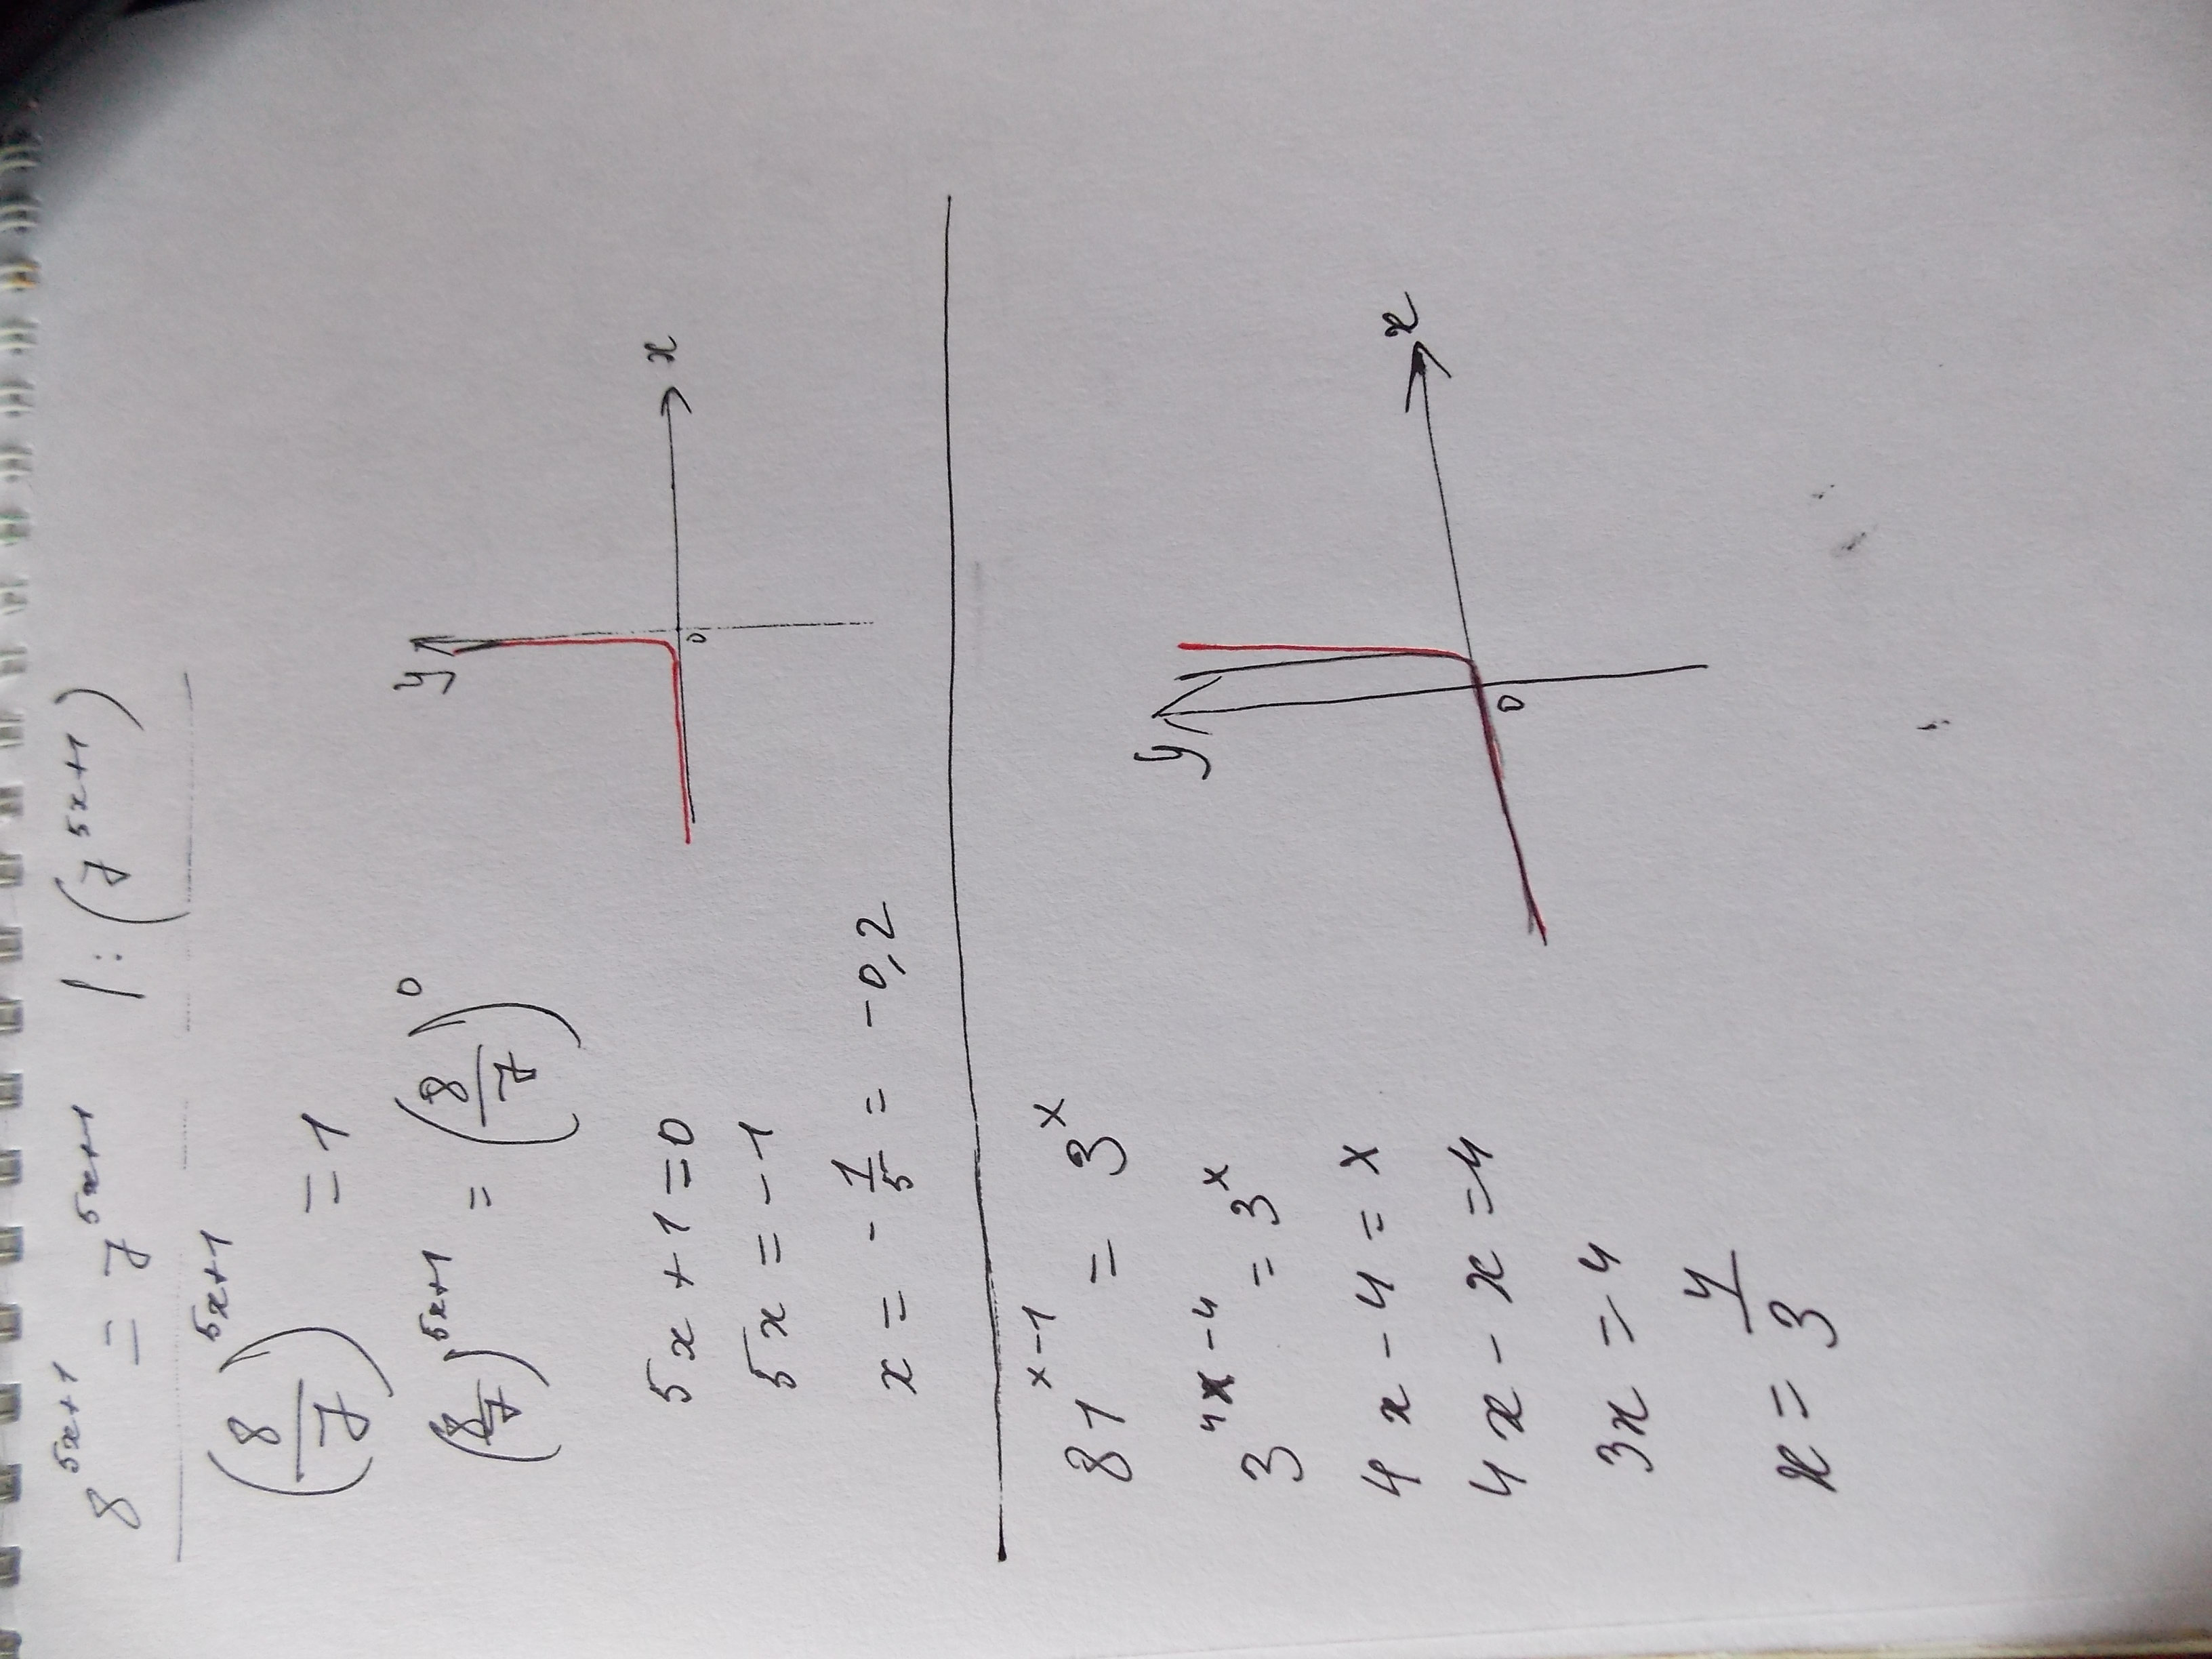 8^(5x+1) = 7^(5x+1) | : (7^(5x+1))
(8/7)^(5x+1) = 1
(8/7)^(5x+1) = (8/7)^0
5x + 1 = 0
5x = -1
x = -1/5 = -0,2
y
x
0
81^(x-1) = 3^x
3^(4x-4) = 3^x
4x - 4 = x
4x - x = 4
3x = 4
x = 4/3
y
x
0